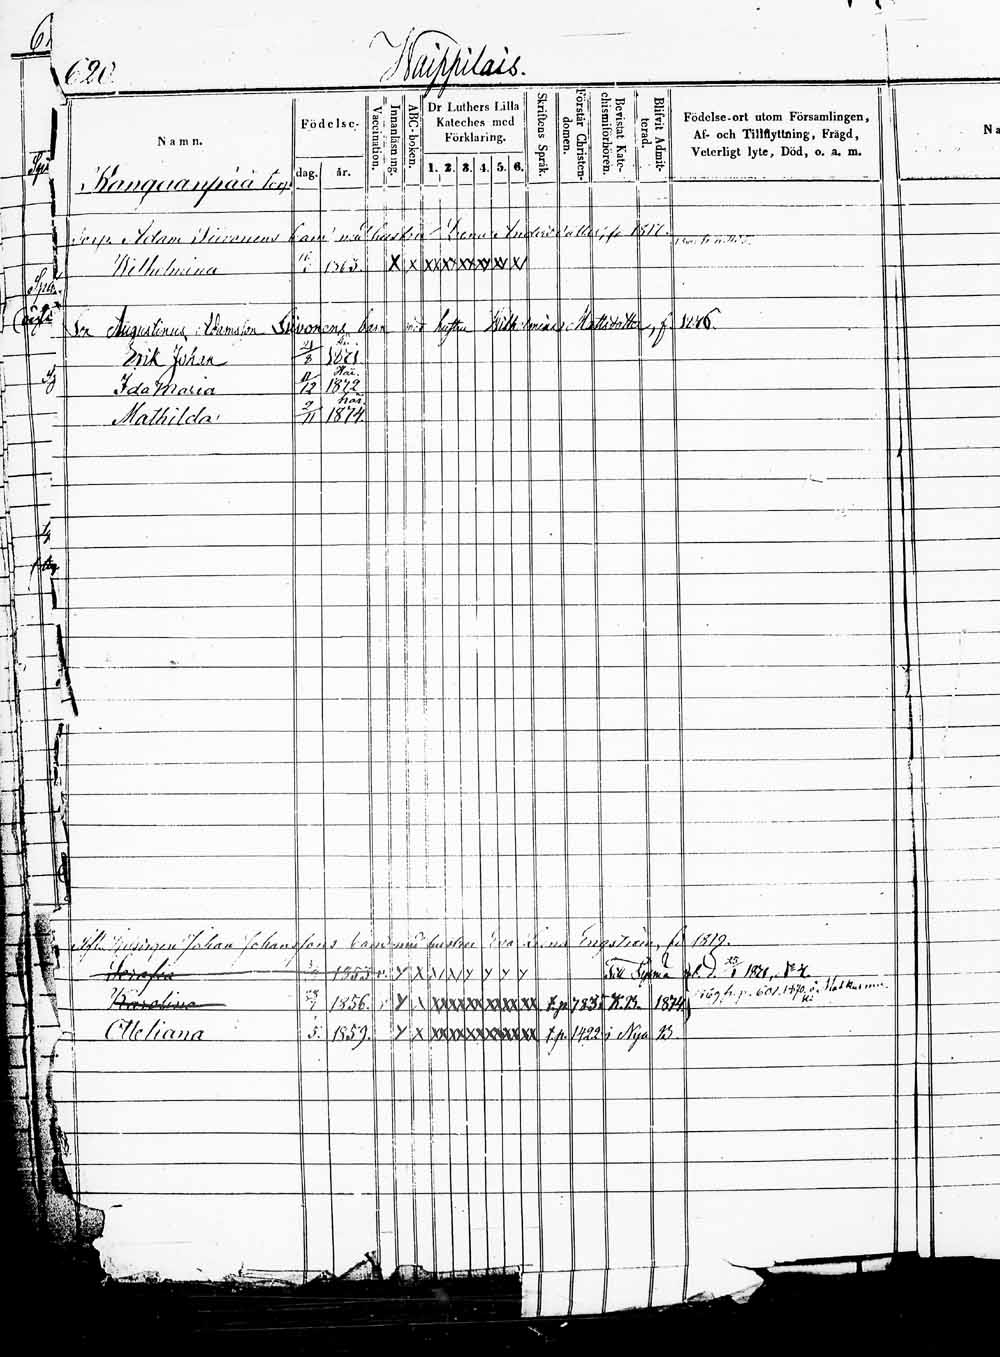 620.
Waippilais.
Namn.
Födelse-
dag. år.
Vaccination.
Innanläsning.
ABC-boken.
Dr Luthers Lilla
Kateches med
Förklaring.
1. 2. 3. 4. 5. 6.
Skriftens Språk.
Förstår Christen-
domen.
Bevistat Kate-
chismiförhören.
Blifvit Admit-
terad.
Födelse-ort utom Församlingen,
Af- och Tillflyttning, Frägd,
Veterligt lyte, Död, o. a. m.
Na
Kanguanpää torp
Adam Siivonens barn med hustru Lena Andersdotter, f. 1817.
Wilhelmina 1863. X X XX XX XX XX XX XX
Augustinus Adamsson Siivonens barn med hustru Wilhelmina Mattsdotter, f. 1846.
Erik Johan 21/8 1871
Ida Maria 11/12 1872
Mathilda 9/11 1874.
Johan Johanssons barn med hustru Eva Lena Engström, f. 1819.
Serafia 1853 v. Y X Till 1870.
Karolina 1856. Y X XX XX XX XX XX XX XX t.p. 783 K.B. 1874
h.p. 601. 1870
Meliana 5. 1859. Y X XX XX XX XX XX XX XX t.p. 1422 i Nya B.